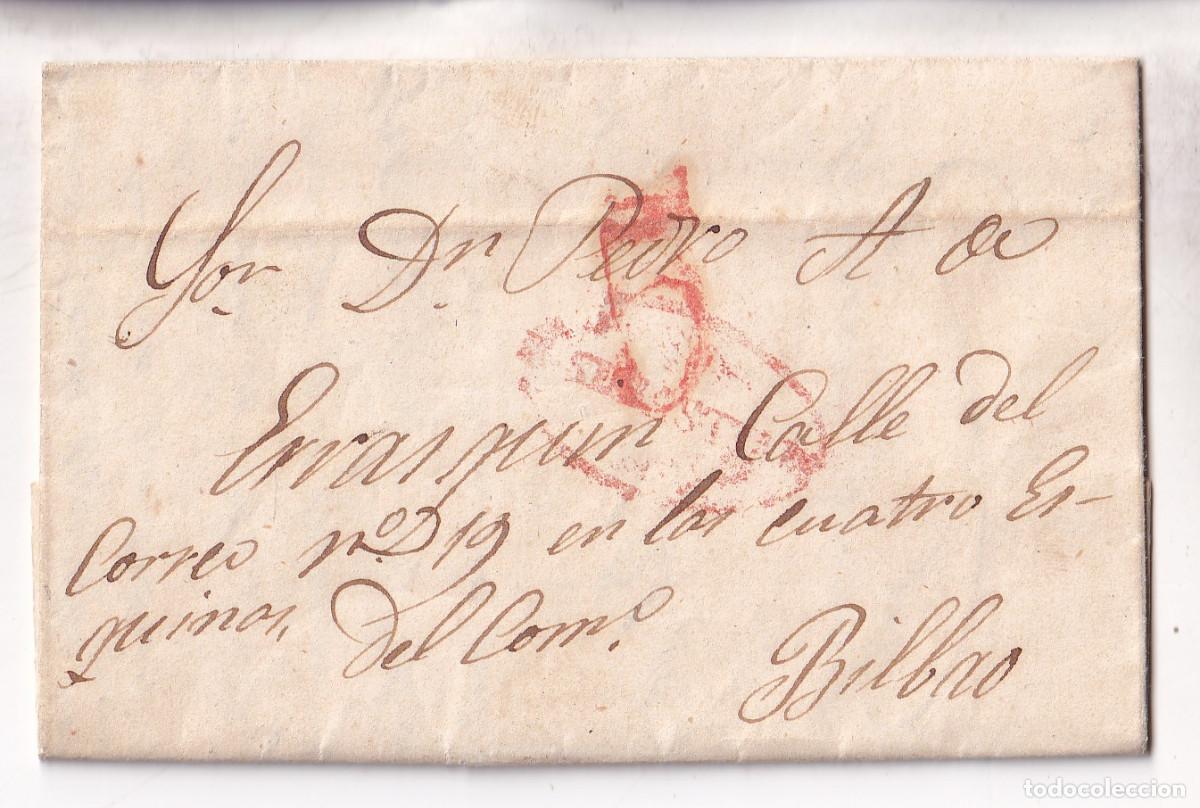 Sor. Dn. Pedro A de
Errasquin Calle del
Correo no. 19 en las cuatro Es-
quinas, del Como.
Bilbao
todocoleccion